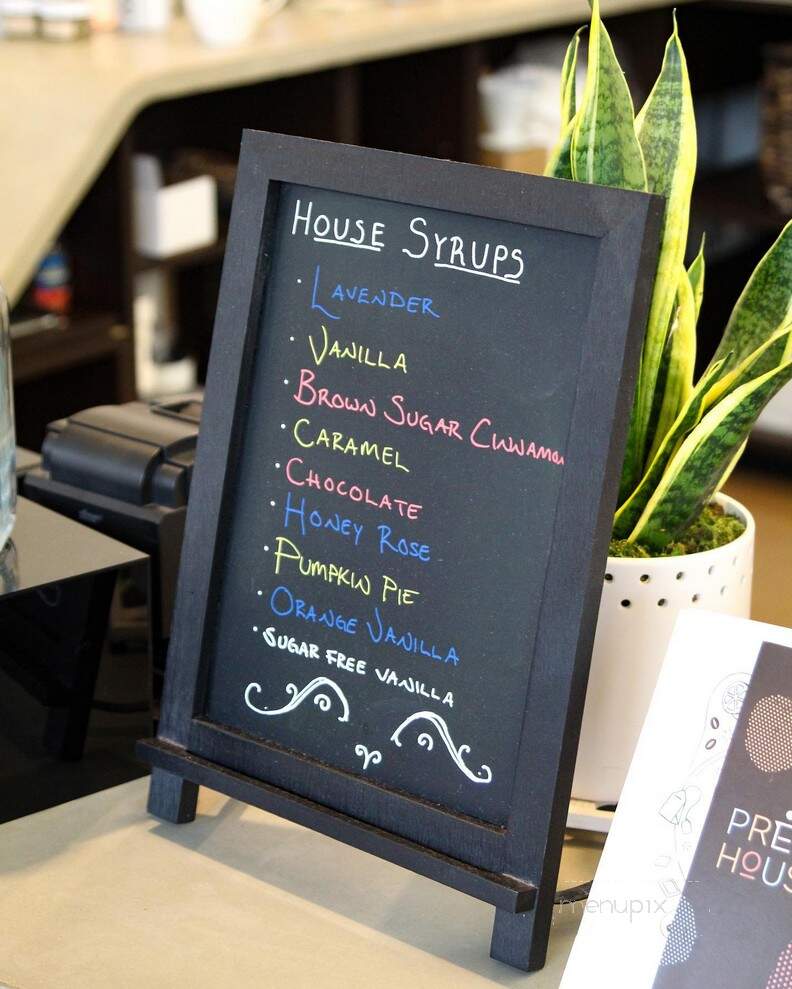 HOUSE SYRUPS
· LAVENDER
· VANILLA
· BROWN SUGAR CINNAMON
· CARAMEL
· CHOCOLATE
· HONEY ROSE
· PUMPKIN PIE
· ORANGE VANILLA
· SUGAR FREE VANILLA
PRE
HOUS
menupix